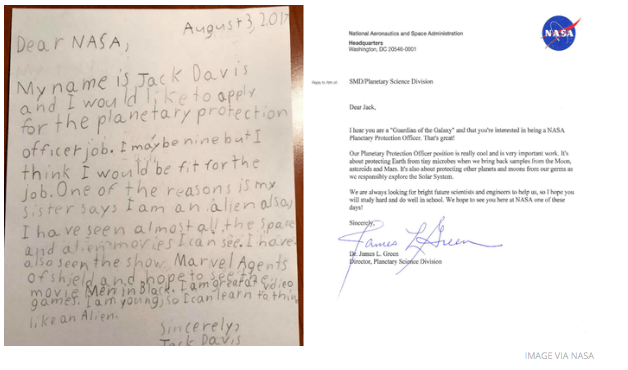 August 3, 2017
Dear NASA,
My name is Jack Davis
and I would like to apply
for the planetary protection
officer job. I may be nine but I
think I would be fit for the
job. One of the reasons is my
sister says I am an alien also,
I have seen almost all the space
and alien movies I can see. I have
also seen the show Marvel Agents
of shield and hope to see the
movie Men in Black. I am great at video
games. I am young, so I can learn to think
like an Alien.
Sincerely,
Jack Davis
National Aeronautics and Space Administration
Headquarters
Washington, DC 20546-0001
NASA
Reply to Attn of:
SMD/Planetary Science Division
Dear Jack,
I hear you are a "Guardian of the Galaxy" and that you're interested in being a NASA
Planetary Protection Officer. That's great!
Our Planetary Protection Officer position is really cool and is very important work. It's
about protecting Earth from tiny microbes when we bring back samples from the Moon,
asteroids and Mars. It's also about protecting other planets and moons from our germs as
we responsibly explore the Solar System.
We are always looking for bright future scientists and engineers to help us, so I hope you
will study hard and do well in school. We hope to see you here at NASA one of these
days!
Sincerely,
James L Green
Dr. James L. Green
Director, Planetary Science Division
IMAGE VIA NASA